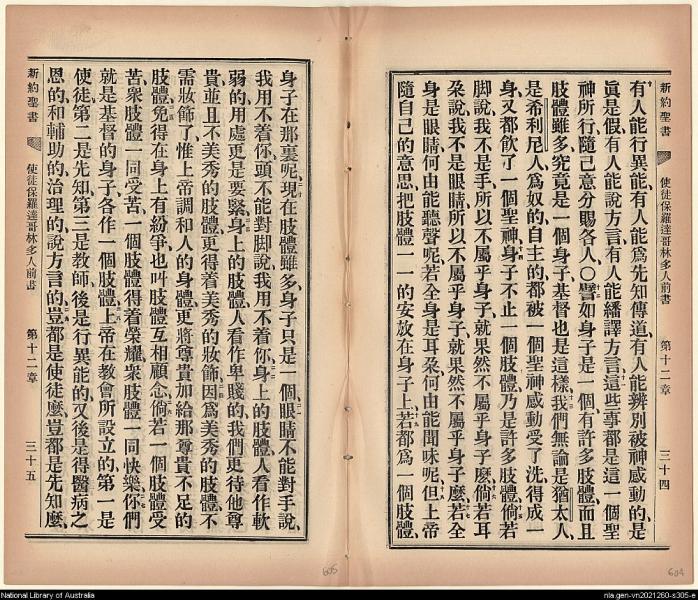 新約聖書
使徒保羅達哥林多人前書
第十二章
三十四
有人能行異能、有人能爲先知傳道、有人能辨別被神感動的、是
眞是假、有人能說方言、有人能繙譯方言、這些事都是這一個聖
神所行、隨己意分賜各人、〇譬如身子是一個、有許多肢體、而且
肢體雖多、究竟是一個身子、基督也是這樣、我們無論是猶太人、
是希利尼人、爲奴的、自主的、都被一個聖神感動受了洗、得成一
身、又都飮了一個聖神、身子不止一個肢體、乃是許多肢體、倘若
脚說、我不是手、所以不屬乎身子、就果然不屬乎身子麼、倘若耳
朶說、我不是眼睛、所以不屬乎身子、就果然不屬乎身子麼、若全
身是眼睛、何由能聽聲呢、若全身是耳朶、何由能聞味呢、但上帝
隨自己的意思、把肢體一一的安放在身子上、若都爲一個肢體、
身子在那裏呢、現在肢體雖多、身子只是一個、眼睛不能對手說、
我用不着你、頭不能對脚說、我用不着你、身上的肢體、人看作軟
弱的、用處更是要緊、身上的肢體、人看作卑賤的、我們更待他尊
貴、並且不美秀的肢體、更得着美秀的妝飾、因爲美秀的肢體、不
需妝飾了、惟上帝調和人的身體、更將尊貴加給那尊貴不足的
肢體、免得在身上有紛爭、也叫肢體互相顧念、倘若一個肢體受
苦、衆肢體一同受苦、一個肢體得着榮耀、衆肢體一同快樂、你們
就是基督的身子、各作一個肢體、上帝在敎會所設立的、第一是
使徒、第二是先知、第三是敎師、後是行異能的、又後是得醫病之
恩的、和輔助的、治理的、說方言的、豈都是使徒麼、豈都是先知麼、
新約聖書
使徒保羅達哥林多人前書
第十二章
三十五
605
604
National Library of Australia
nla.gen-vn2021260-s305-e